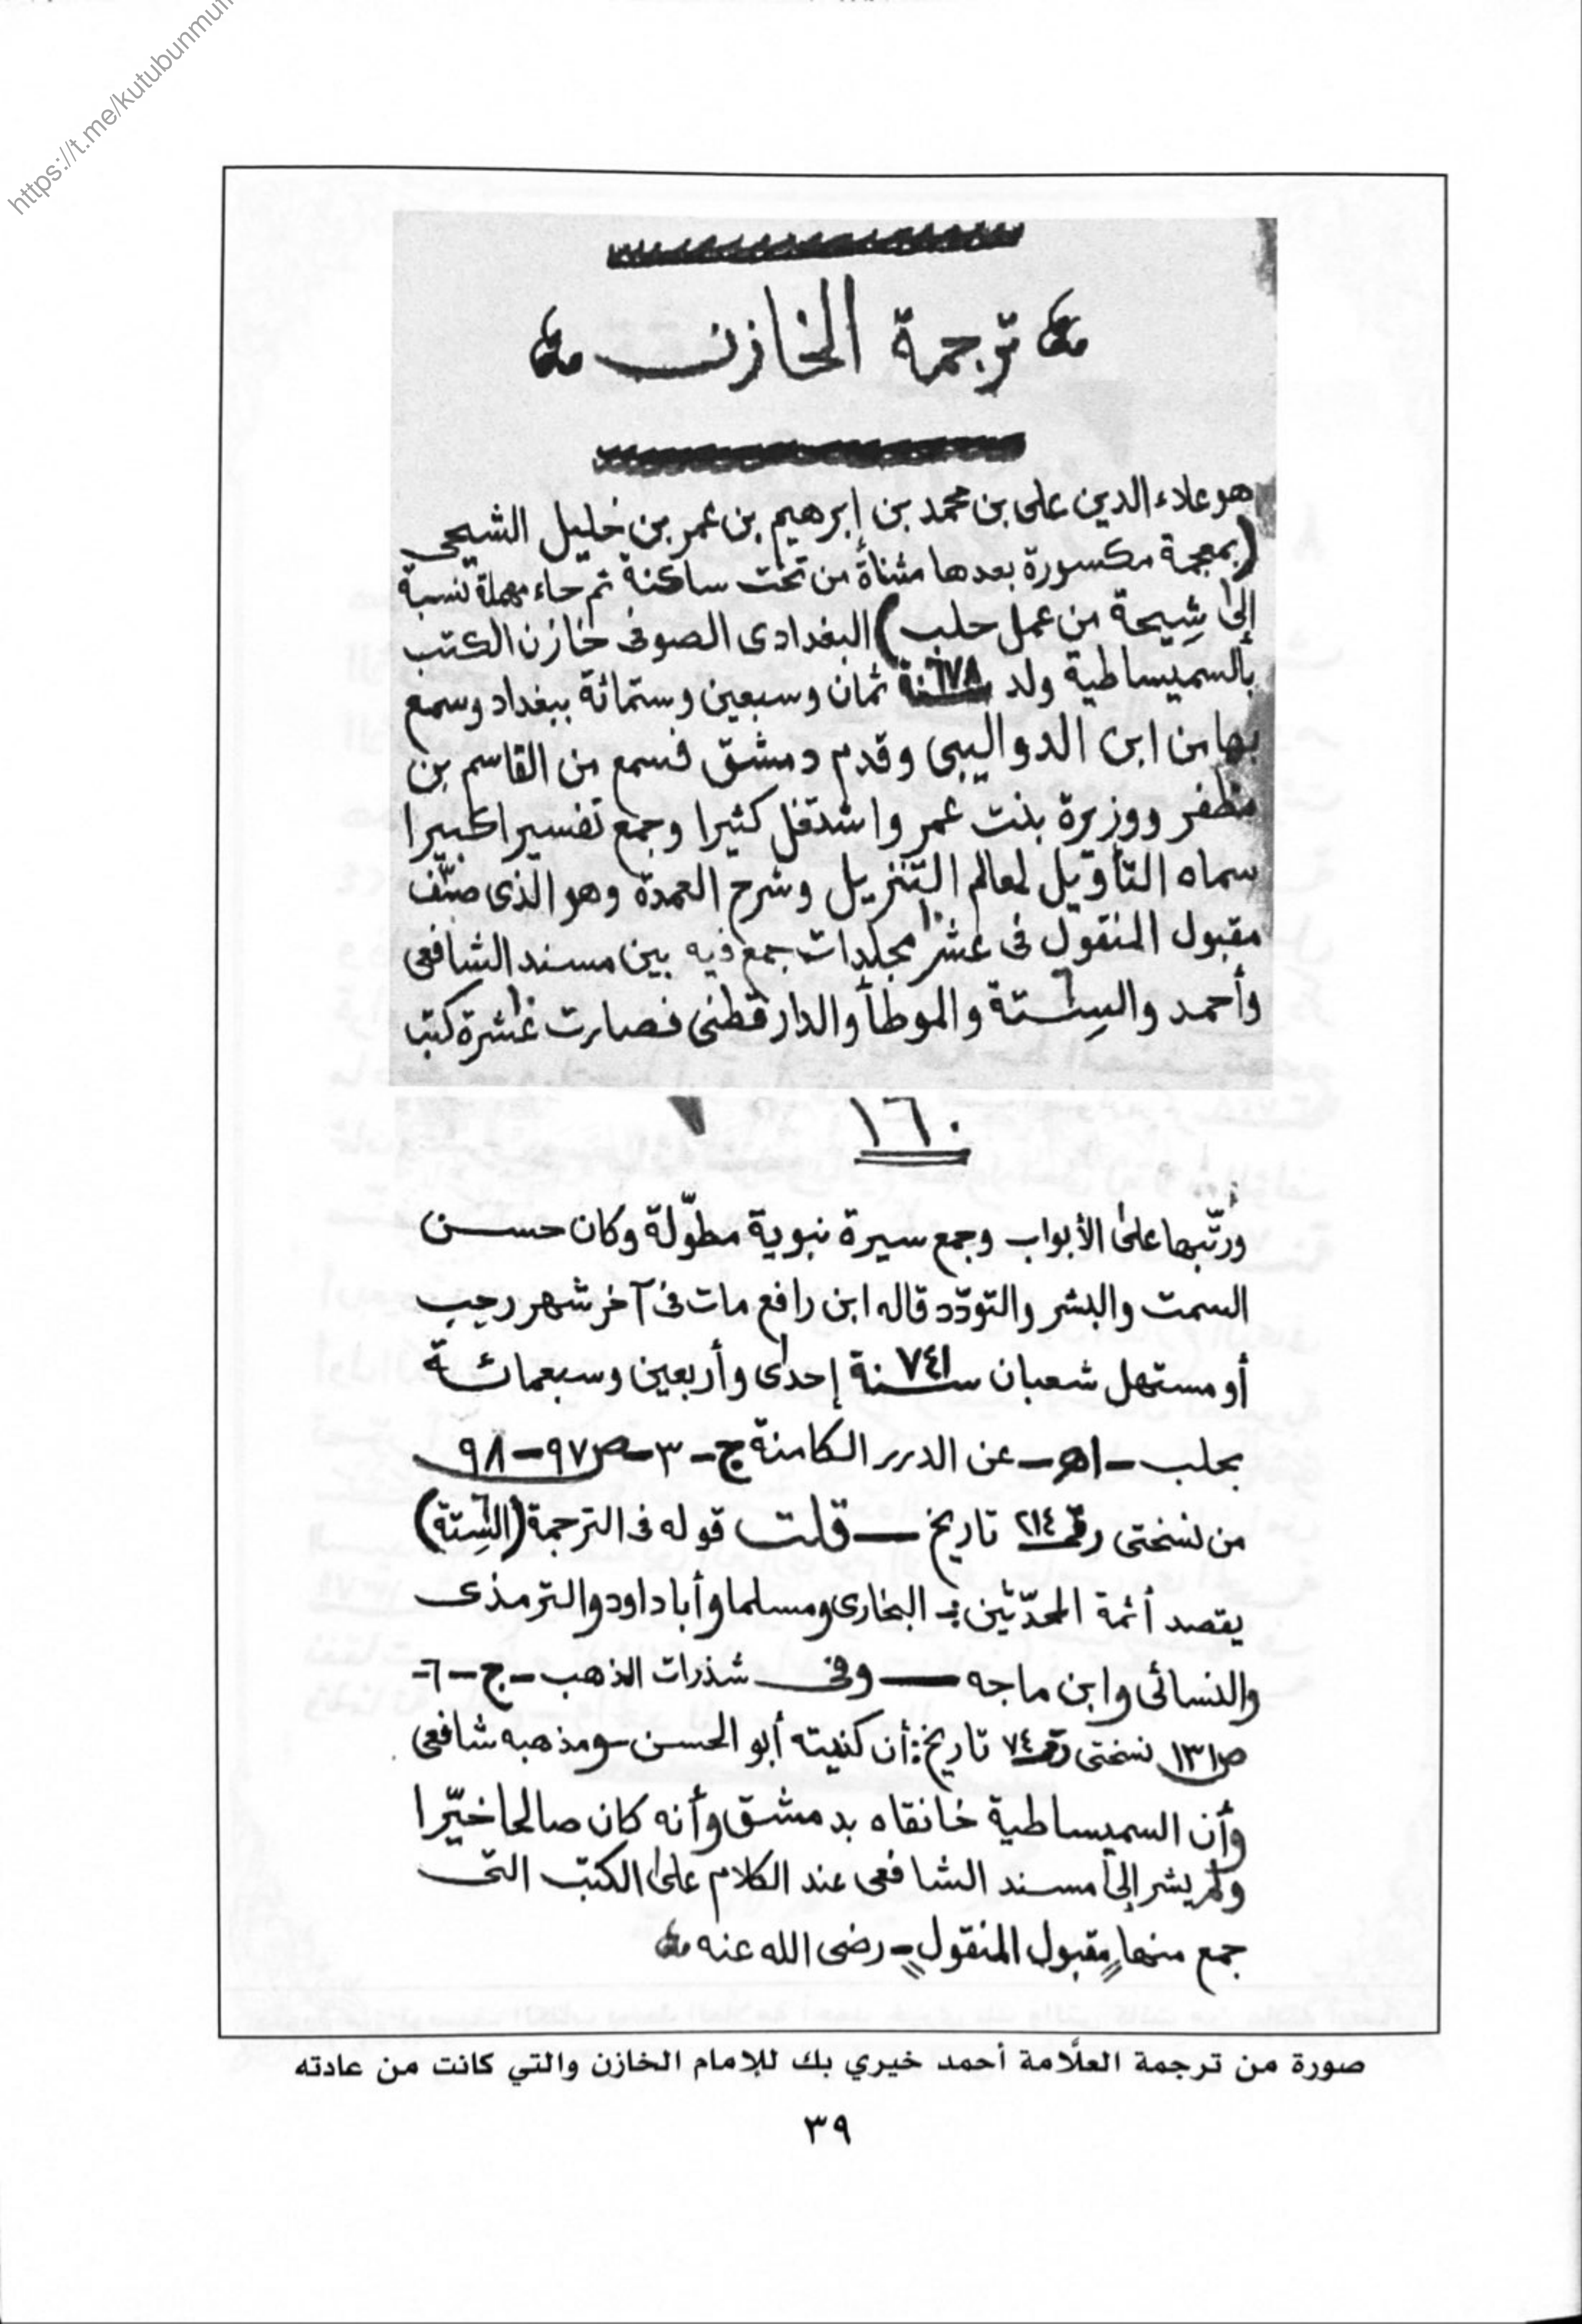 https://t.me/kutubunmun
ترجمة الخازن
هو علاء الدين على بن محمد بن إبرهيم بن عمر بن خليل الشيحى
(بمعجمة مكسورة بعدها مثناة من تحت ساكنة ثم حاء مهملة نسبة
إلى شِيحة من عمل حلب) البغدادى الصوفى خازن الكتب
بالسميساطية ولد سنة ٦٧٨ ثمان وسبعين وستمائة ببغداد وسمع
بها من ابن الدواليبى وقدم دمشق فسمع من القاسم بن
مظفر ووزيرة بنت عمر واشتغل كثيرا وجمع تفسيرا كبيرا
سماه التأويل لمعالم التنزيل وشرح العمدة وهو الذى صنّف
مقبول المنقول فى عشر ١٠ مجلدات جمع فيه بين مسند الشافعى
وأحمد والستة ٦ والموطأ والدارقطنى فصارت عشرة ١٠ كتب
١٦٠
ورتّبها على الأبواب وجمع سيرة نبوية مطوّلة وكان حسن
السمت والبشر والتودّد قاله ابن رافع مات فى آخر شهر رجب
أو مستهل شعبان سنة ٧٤١ إحدى وأربعين وسبعمائة
بحلب - اهـ - عن الدرر الكامنة ج - ٣ - ص ٩٧ - ٩٨
من نسختى رقم ٢١٤ تاريخ — قلت قوله فى الترجمة (الستة ٦)
يقصد أئمة المحدّثين : البخارى ومسلما وأبا داود والترمذى
والنسائى وابن ماجه — وفى شذرات الذهب - ج - ٦ -
ص ١٣١ نسختى رقم ٧٤ تاريخ : أن كنيته أبو الحسن - ومذهبه شافعى
وأن السميساطية خانقاه بدمشق وأنه كان صالحا خيّرا
ولم يشر إلى مسند الشافعى عند الكلام على الكتب التى
جمع منها "مقبول المنقول" - رضى الله عنه
صورة من ترجمة العلَّامة أحمد خيري بك للإمام الخازن والتي كانت من عادته
٣٩